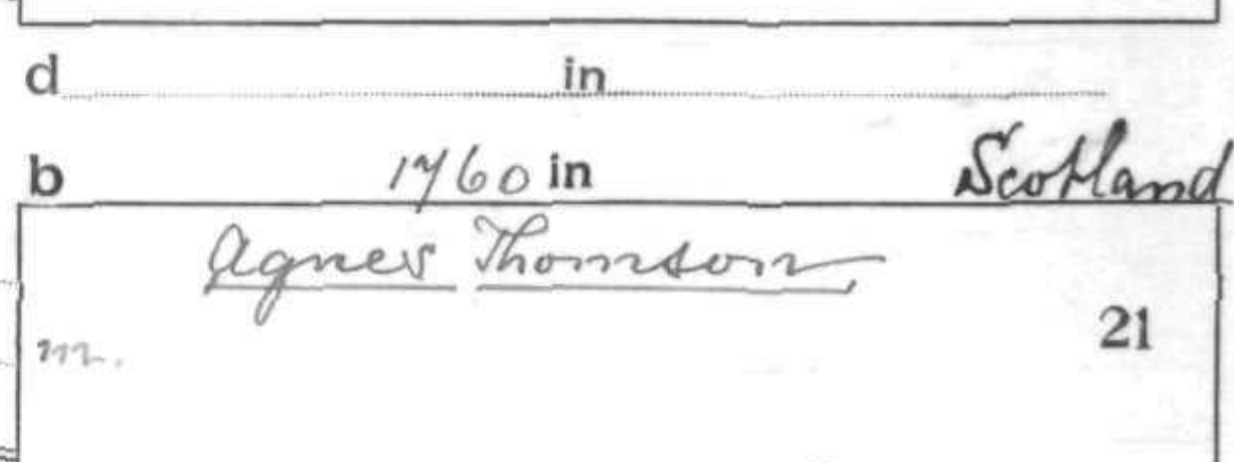 d in
b 1760 in Scotland
Agnes Thomson
21
m.